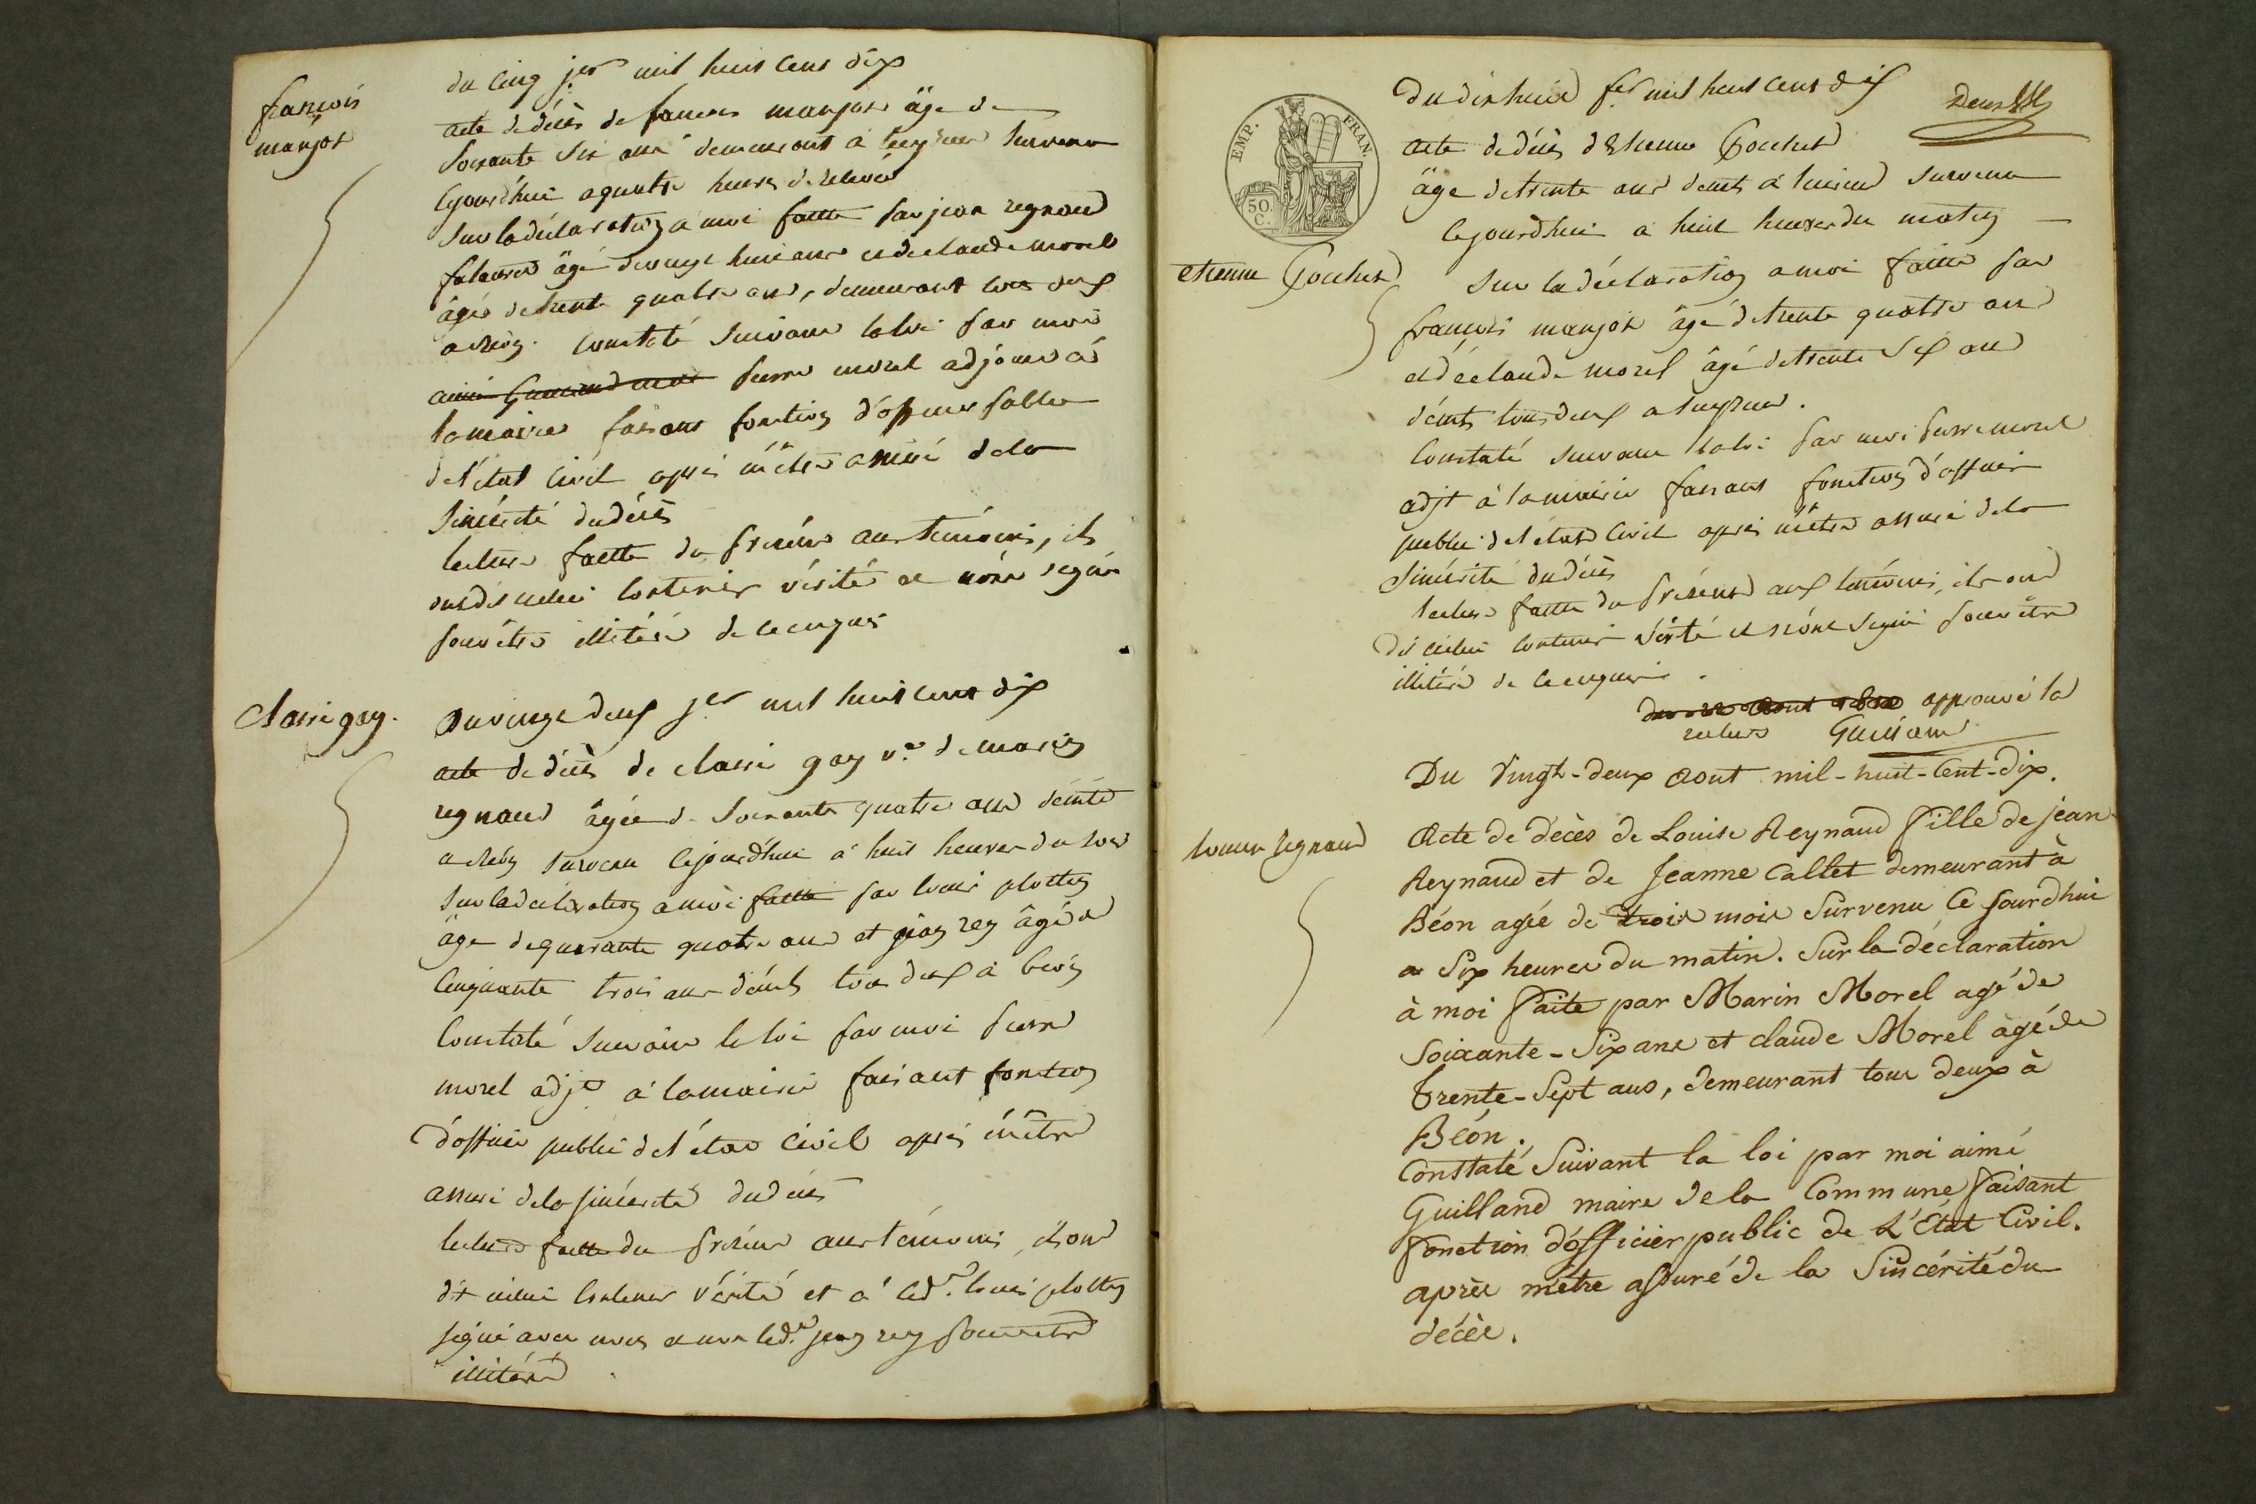 françois
manjot
du cinq jer mil huit cens dix
acte de décès de françois manjot âge de
soixante six ans demeurant à survenu
cejourd'hui a quatre heures de relevée
sur la déclaration a moi faitte par jean regnaud
âgé de vingt huit ans et de claude morel
âgé de trente quatre ans, demeurant tous deux
a béon. constaté suivant la loi par moi
pierre morel adjoint à
la mairie faisant fonction d'officier public
de l'état civil après m'être assuré de la
sincérité du décès
lecture faitte du présent aux témoins, ils
ont dis icelui contenir vérité et n'ont signé
pour être illitéré de ce enquis
Clasri gay.
Du vingt deux jer mil huit cens dix
acte de décès de clasri gay ve de marin
regnaud âgée de soixante quatre ans
a béon survenu cejourd'hui à huit heures du soir
sur la déclaration a moi faitte par louis plottin
âge de quarante quatre ans et rey âgé de
cinquante trois ans tous deux à béon
Constaté suivant la loi par moi pierre
morel adjt à la mairie faisant fonction
d'officier public de l'état civil après m'être
assuré de la sincérité du décès
lecture faitte du présent aux témoins, ils ont
dit icelui contenir vérité et a led. louis plottin
signé avec nous et non led. rey pour être
illitéré
EMP. FRAN.
50
C.
Du dix huit fer mil huit cens dix
Deux
acte de décès d'Etienne Pochet
âge de trente ans à survenu
cejourd'hui a huit heures du matin
etienne Pochet
sur la déclaration a moi faitte par
françois manjot âgé de trente quatre ans
et de claude morel âgé de trente six ans
tous deux a
Constaté suivant la loi par moi pierre morel
adjt à la mairie faisant fonction d'officier
public de l'état civil après m'être assuré de la
sincérité du décès
lecture faitte du présent aux témoins, ils ont
dit icelui contenir vérité et n'ont signé pour être
illitéré de ce enquis.
approuvé la
rature Guilland
Du Vingt-deux aout mil-huit-Cent-Dix.
louise regnaud
Acte de décès de Louise Reynaud fille de jean
Reynaud et de Jeanne Callet demeurant à
Béon agée de trois mois Survenu Ce jourdhui
a Six heures du matin. Sur la déclaration
à moi faite par Marin Morel agé de
Soixante-Six ans et claude Morel àgé de
trente-Sept ans, demeurant tous deux à
Béon.
Constaté Suivant la loi par moi aimé
Guilland maire de la Commune faisant
fonction d'officier public de L'État Civil.
après m'être assuré de la Sincérité du
décès.